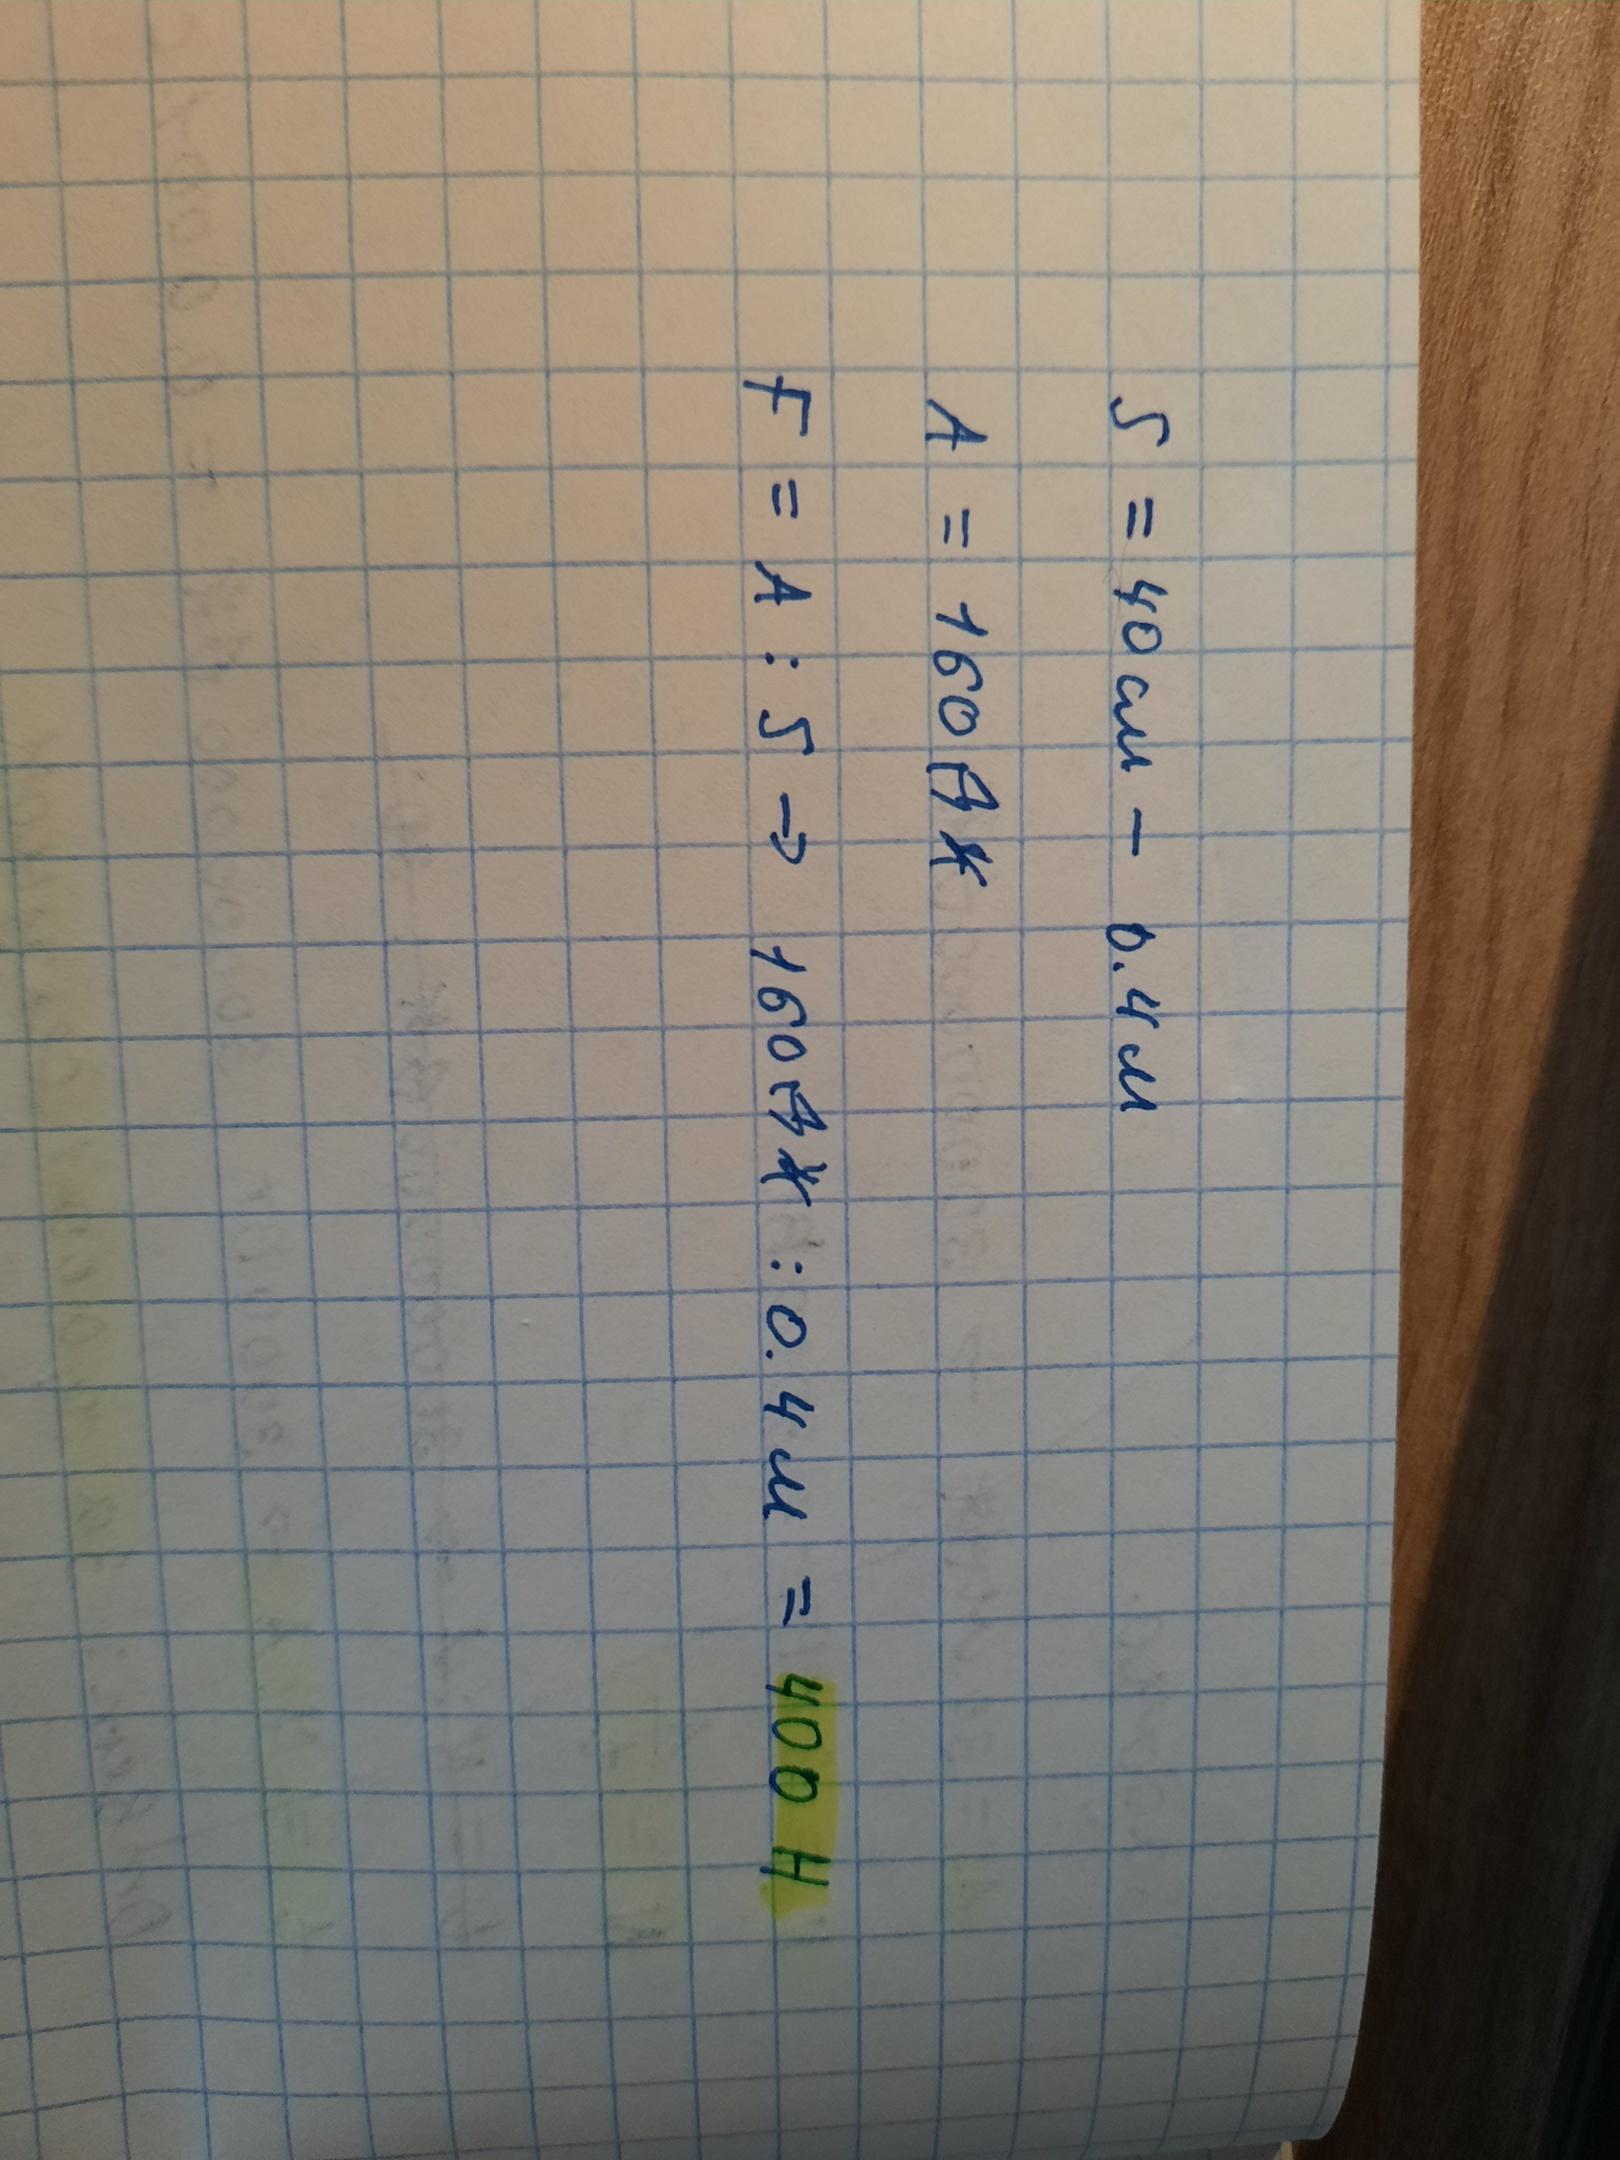 S = 40см - 0.4м
A = 160Дж
F = A : S → 160Дж : 0.4м = 400 Н